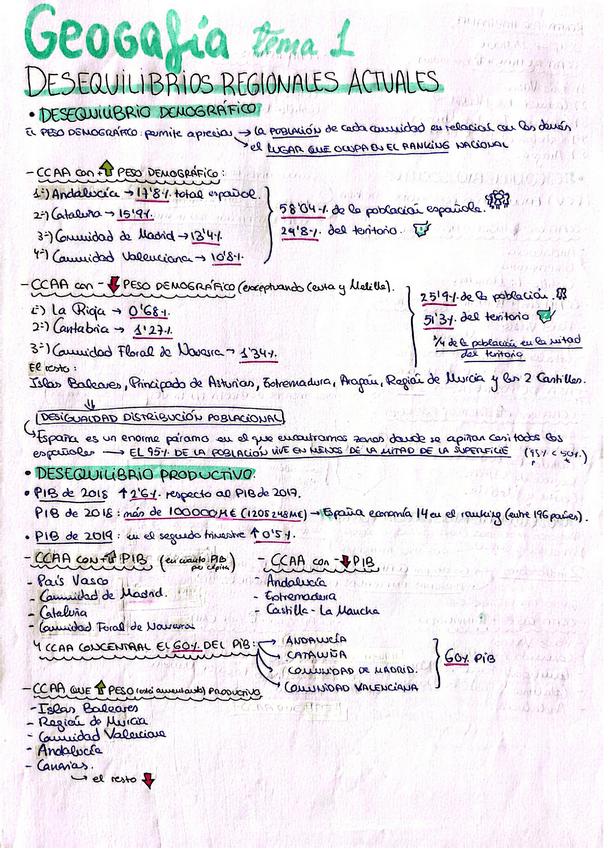 Geogafía tema 1
DESEQUILIBRIOS REGIONALES ACTUALES
• DESEQUILIBRIO DEMOGRÁFICO
EL PESO DEMOGRÁFICO: permite apreciar → la POBLACIÓN de cada comunidad en relación con los demás
↘ el LUGAR QUE OCUPA EN EL RANKING NACIONAL
- CCAA con ↑ PESO DEMOGRÁFICO:
1º) Andalucía → 17'8% total español.
2º) Cataluña → 15'9%
3º) Comunidad de Madrid → 13'4%
4º) Comunidad Valenciana → 10'8%
58'04% de la población española.
29'8% del territorio.
- CCAA con - ↓ PESO DEMOGRÁFICO (exceptuando Ceuta y Melilla).
1º) La Rioja → 0'68%
2º) Cantabria → 1'27%
3º) Comunidad Floral de Navarra → 1'34%
25'9% de la población.
51'3% del territorio
1/4 de la población en la mitad
del territorio
El resto:
Islas Baleares, Principado de Asturias, Extremadura, Aragón, Región de Murcia y las 2 Castillas.
⇓
DESIGUALDAD DISTRIBUCIÓN POBLACIONAL
España es un enorme páramo en el que encontramos zonas donde se apiñan casi todos los
españoles → EL 95% DE LA POBLACIÓN VIVE EN MENOS DE LA MITAD DE LA SUPERFICIE (95% < 50%)
• DESEQUILIBRIO PRODUCTIVO:
• PIB de 2018 ↑ 2'6% respecto al PIB de 2019.
PIB de 2018: más de 100000M€ (1205248M€) → España economía 14 en el ranking (entre 196 países).
• PIB de 2019: en el segundo trimestre ↑ 0'5%
- CCAA con + ↑ PIB (en cuanto PIB per cápita)
- País Vasco
- Comunidad de Madrid.
- Cataluña
- Comunidad Foral de Navarra
- CCAA con - ↓ PIB
- Andalucía
- Extremadura
- Castilla - La Mancha
4 CCAA CONCENTRAN EL 60% DEL PIB:
ANDALUCÍA
CATALUÑA
COMUNIDAD DE MADRID.
COMUNIDAD VALENCIANA
60% PIB
- CCAA QUE ↑ PESO (está aumentando) PRODUCTIVO
- Islas Baleares
- Región de Murcia
- Comunidad Valenciana
- Andalucía
- Canarias.
→ el resto ↓